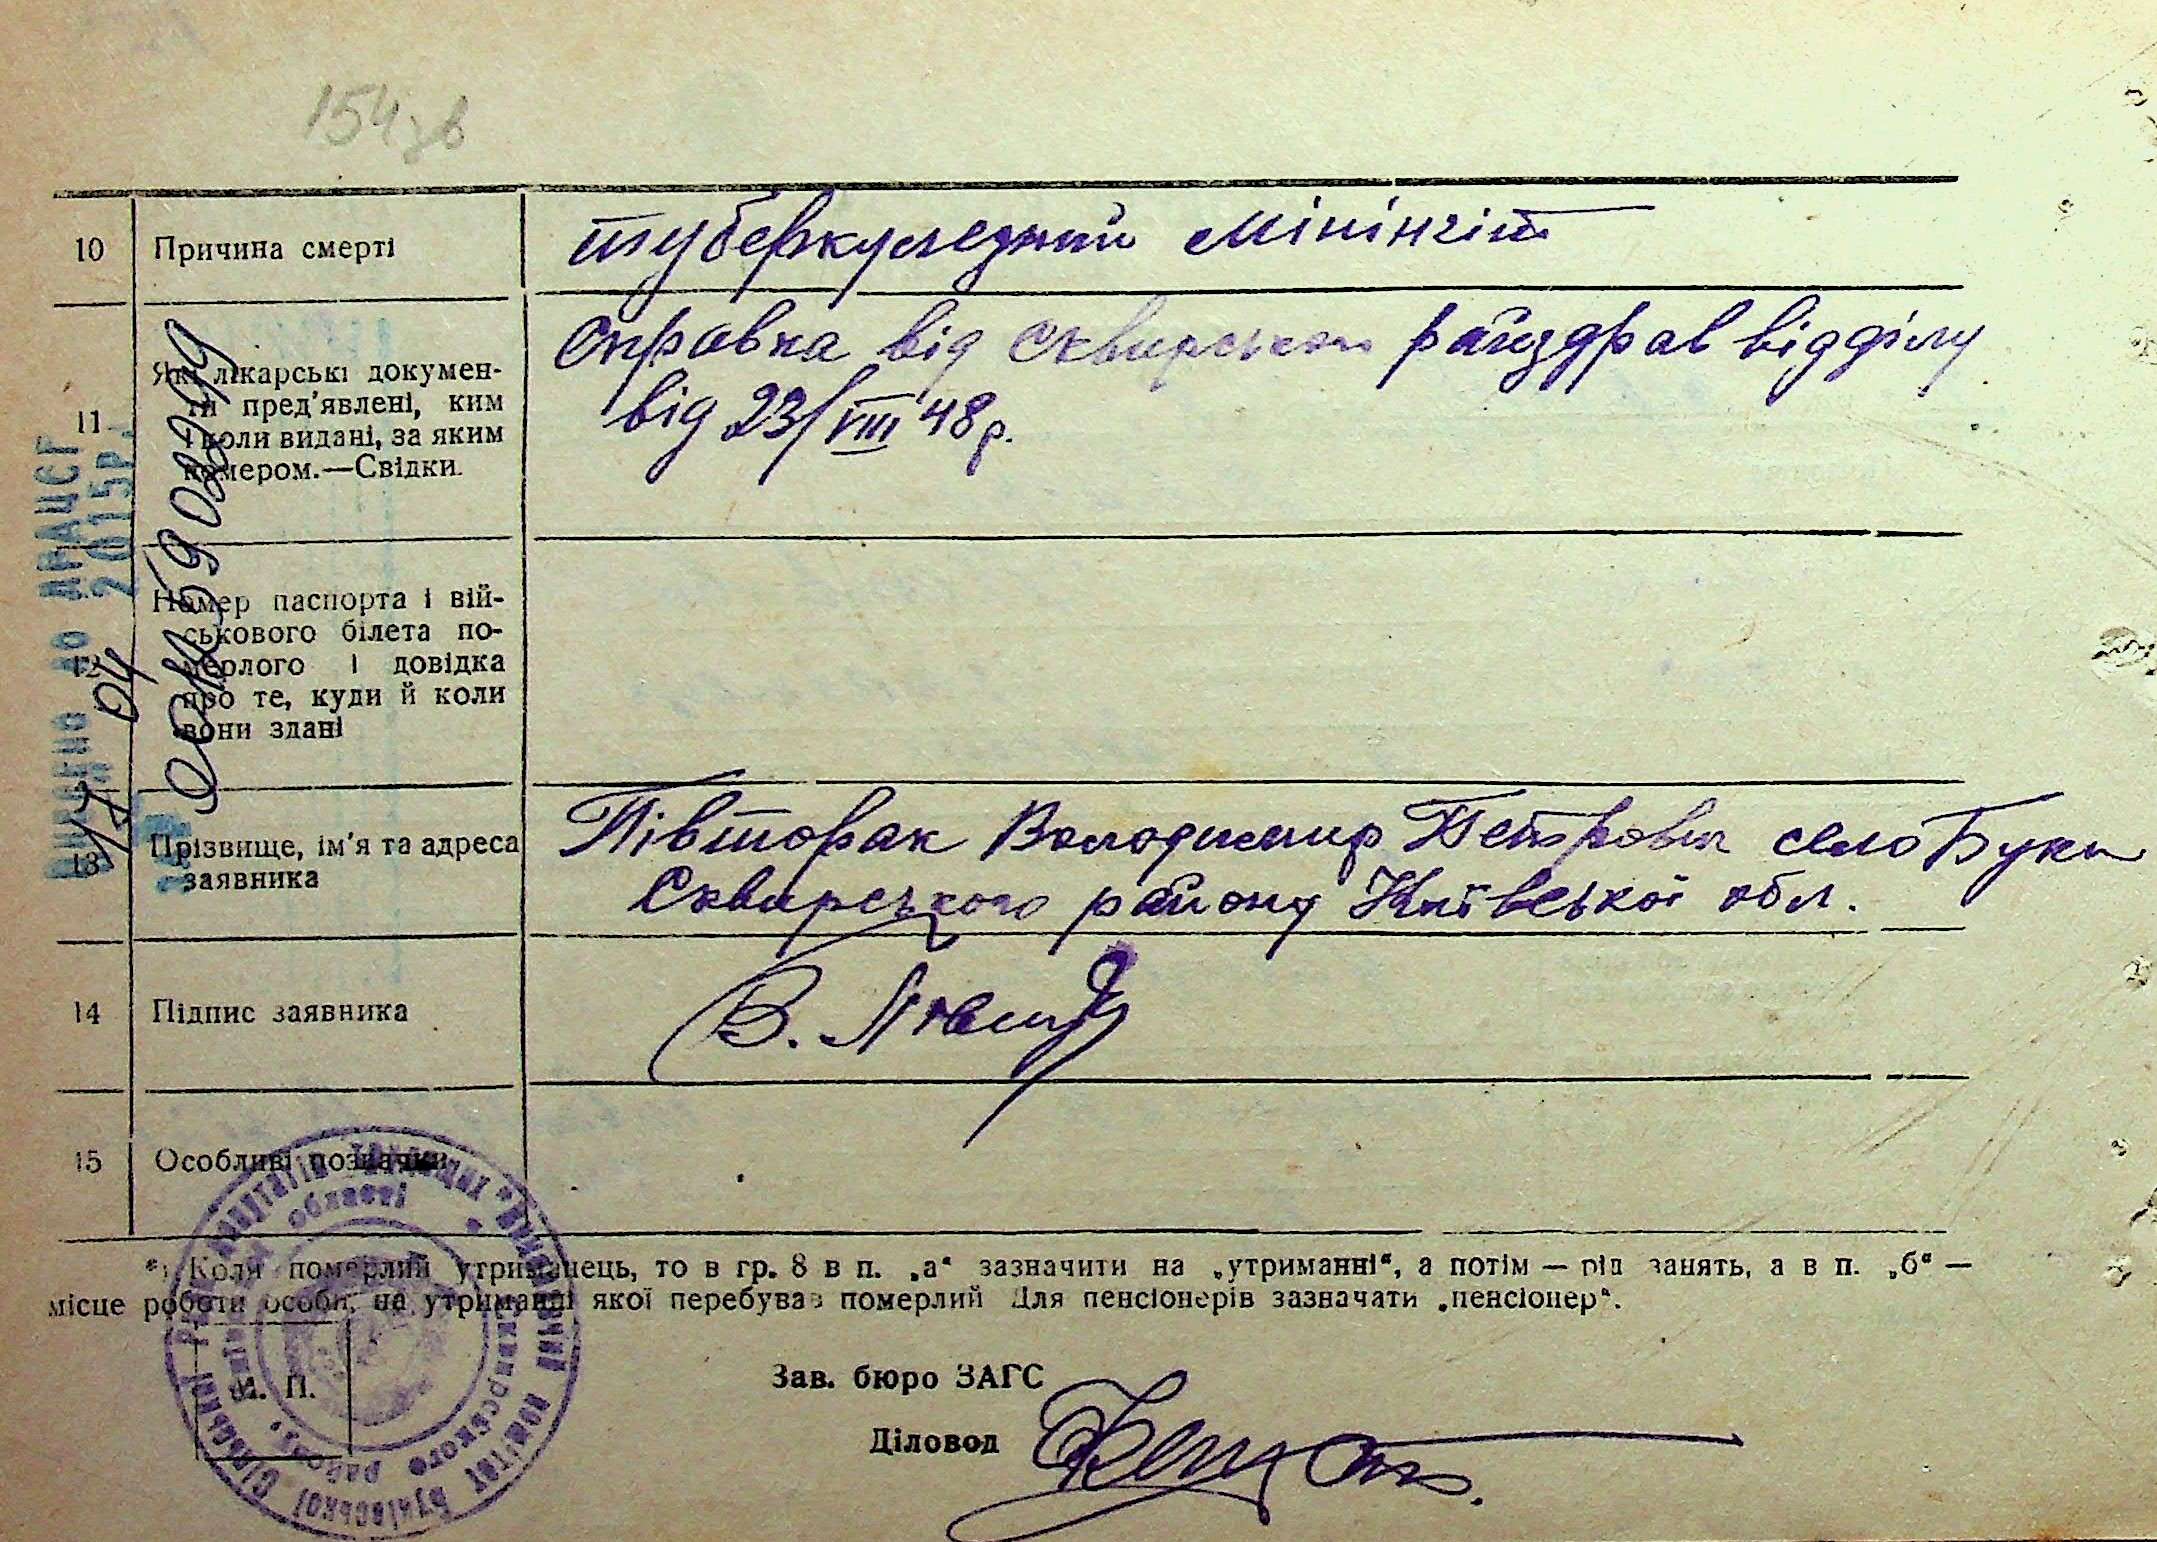 154зв
10 Причина смерті туберкулезний Мінінгіт
11 Які лікарські докумен-
ти пред'явлені, ким
і коли видані, за яким
номером.—Свідки.
Справка від Сквирського райздраввідділу
від 23/VIII 48 р.
12 Номер паспорта і вій-
ськового білета по-
мерлого і довідка
про те, куди й коли
вони здані
13 Прізвище, ім'я та адреса
заявника
Півторак Володимир Петрович село Буки
Сквирського району Київської обл.
14 Підпис заявника
В. Півт
15 Особливі позначки
*) Коли померлий утриманець, то в гр. 8 в п. „а“ зазначити на „утриманні“, а потім — рід занять, а в п. „б“ —
місце роботи особи, на утриманні якої перебував померлий Для пенсіонерів зазначати „пенсіонер“.
М. П.
Зав. бюро ЗАГС
Діловод
до ДРАЦСГ
2015р.
17 04
депутатів трудящих * Виконавчий комітет Буківської сільської Ради
Сквирського району, області